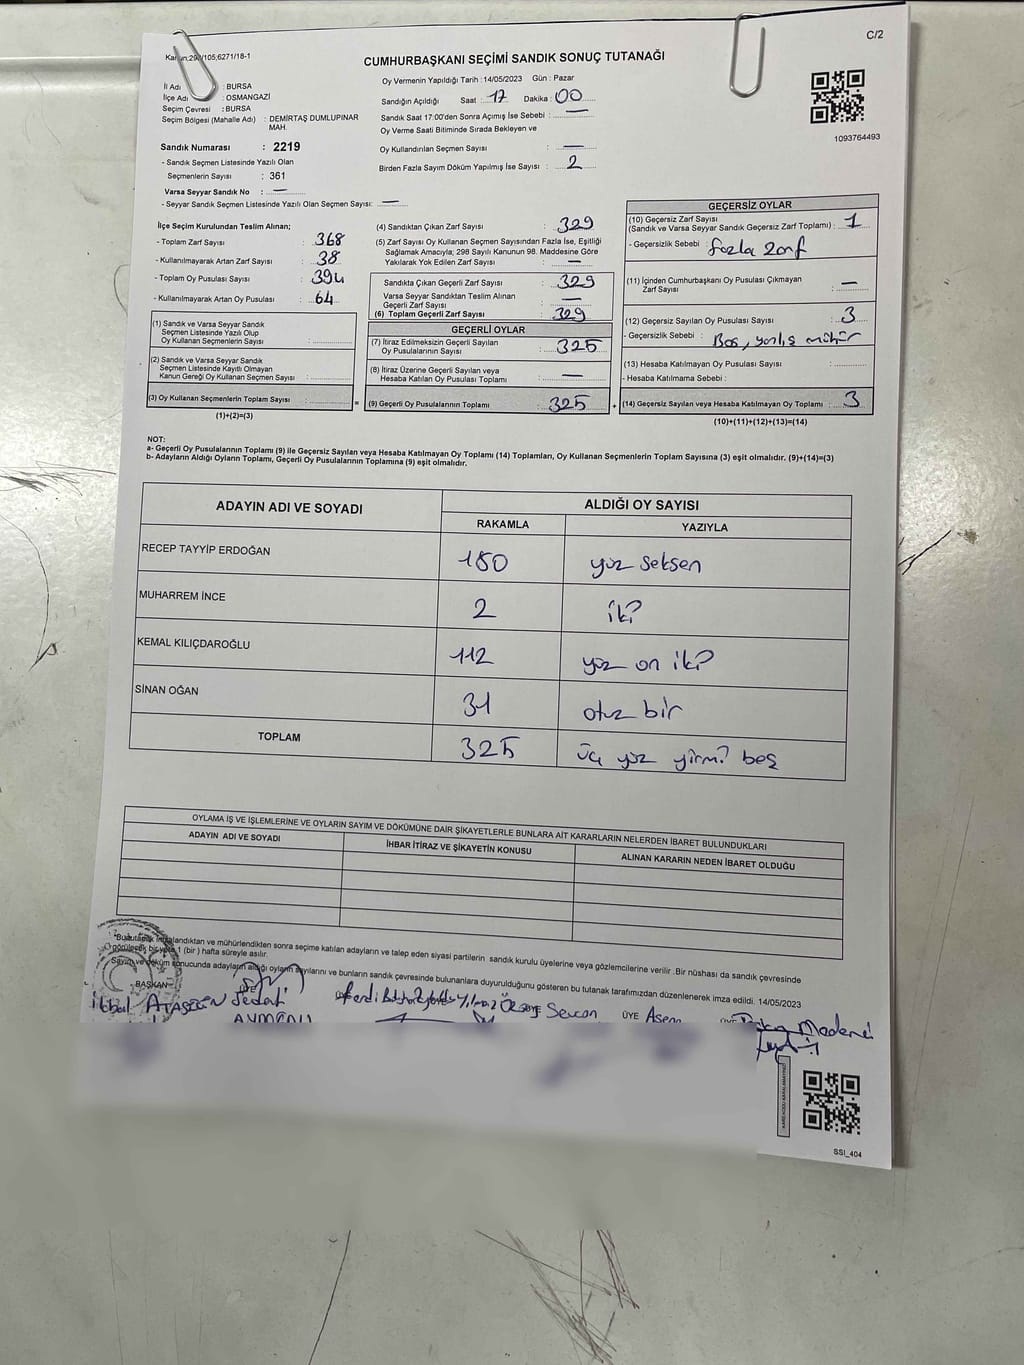 C/2
CUMHURBAŞKANI SEÇİMİ SANDIK SONUÇ TUTANAĞI
İl Adı : BURSA
İlçe Adı : OSMANGAZİ
Seçim Çevresi : BURSA
Seçim Bölgesi (Mahalle Adı) : DEMİRTAŞ DUMLUPINAR
MAH.
Sandık Numarası : 2219
- Sandık Seçmen Listesinde Yazılı Olan
Seçmenlerin Sayısı : 361
Varsa Seyyar Sandık No : —
- Seyyar Sandık Seçmen Listesinde Yazılı Olan Seçmen Sayısı: —
Oy Vermenin Yapıldığı Tarih : 14/05/2023 Gün : Pazar
Sandığın Açıldığı Saat : 17 Dakika : 00
Sandık Saat 17:00'den Sonra Açımış İse Sebebi : —
Oy Verme Saati Bitiminde Sırada Bekleyen ve
Oy Kullandırılan Seçmen Sayısı : —
Birden Fazla Sayım Döküm Yapılmış İse Sayısı : 2
1093764493
İlçe Seçim Kurulundan Teslim Alınan;
- Toplam Zarf Sayısı : 368
- Kullanılmayarak Artan Zarf Sayısı : 38
- Toplam Oy Pusulası Sayısı : 394
- Kullanılmayarak Artan Oy Pusulası : 64
(1) Sandık ve Varsa Seyyar Sandık
Seçmen Listesinde Yazılı Olup
Oy Kullanan Seçmenlerin Sayısı :
(2) Sandık ve Varsa Seyyar Sandık
Seçmen Listesinde Kayıtlı Olmayan
Kanun Gereği Oy Kullanan Seçmen Sayısı :
(3) Oy Kullanan Seçmenlerin Toplam Sayısı :
(1)+(2)=(3)
(4) Sandıktan Çıkan Zarf Sayısı : 329
(5) Zarf Sayısı Oy Kullanan Seçmen Sayısından Fazla İse, Eşitliği
Sağlamak Amacıyla; 298 Sayılı Kanunun 98. Maddesine Göre
Yakılarak Yok Edilen Zarf Sayısı : —
Sandıkta Çıkan Geçerli Zarf Sayısı : 329
Varsa Seyyar Sandıktan Teslim Alınan
Geçerli Zarf Sayısı : —
(6) Toplam Geçerli Zarf Sayısı : 329
GEÇERLİ OYLAR
(7) İtiraz Edilmeksizin Geçerli Sayılan
Oy Pusulalarının Sayısı : 325
(8) İtiraz Üzerine Geçerli Sayılan veya
Hesaba Katılan Oy Pusulası Toplamı : —
= (9) Geçerli Oy Pusulalarının Toplamı : 325
GEÇERSİZ OYLAR
(10) Geçersiz Zarf Sayısı
(Sandık ve Varsa Seyyar Sandık Geçersiz Zarf Toplamı) : 1
- Geçersizlik Sebebi : fazla zarf
(11) İçinden Cumhurbaşkanı Oy Pusulası Çıkmayan
Zarf Sayısı : —
(12) Geçersiz Sayılan Oy Pusulası Sayısı : 3
- Geçersizlik Sebebi : Boş, yanlış mühür
(13) Hesaba Katılmayan Oy Pusulası Sayısı :
- Hesaba Katılmama Sebebi :
+ (14) Geçersiz Sayılan veya Hesaba Katılmayan Oy Toplamı : 3
(10)+(11)+(12)+(13)=(14)
NOT:
a- Geçerli Oy Pusulalarının Toplamı (9) ile Geçersiz Sayılan veya Hesaba Katılmayan Oy Toplamı (14) Toplamları, Oy Kullanan Seçmenlerin Toplam Sayısına (3) eşit olmalıdır. (9)+(14)=(3)
b- Adayların Aldığı Oyların Toplamı, Geçerli Oy Pusulalarının Toplamına (9) eşit olmalıdır.
ADAYIN ADI VE SOYADI ALDIĞI OY SAYISI
RAKAMLA YAZIYLA
RECEP TAYYİP ERDOĞAN 180 yüz seksen
MUHARREM İNCE 2 iki
KEMAL KILIÇDAROĞLU 112 yüz on iki
SİNAN OĞAN 31 otuz bir
TOPLAM 325 üç yüz yirmi beş
OYLAMA İŞ VE İŞLEMLERİNE VE OYLARIN SAYIM VE DÖKÜMÜNE DAİR ŞİKAYETLERLE BUNLARA AİT KARARLARIN NELERDEN İBARET BULUNDUKLARI
ADAYIN ADI VE SOYADI İHBAR İTİRAZ VE ŞİKAYETİN KONUSU ALINAN KARARIN NEDEN İBARET OLDUĞU
landıktan ve mühürlendikten sonra seçime katılan adayların ve talep eden siyasi partilerin sandık kurulu üyelerine veya gözlemcilerine verilir. Bir nüshası da sandık çevresinde
1 (bir) hafta süreyle asılır.
Sayım ve döküm sonucunda adayların aldığı oyların sayılarını ve bunların sandık çevresinde bulunanlara duyurulduğunu gösteren bu tutanak tarafımızdan düzenlenerek imza edildi. 14/05/2023
BAŞKAN
Sercan ÜYE Asena
SSI_404